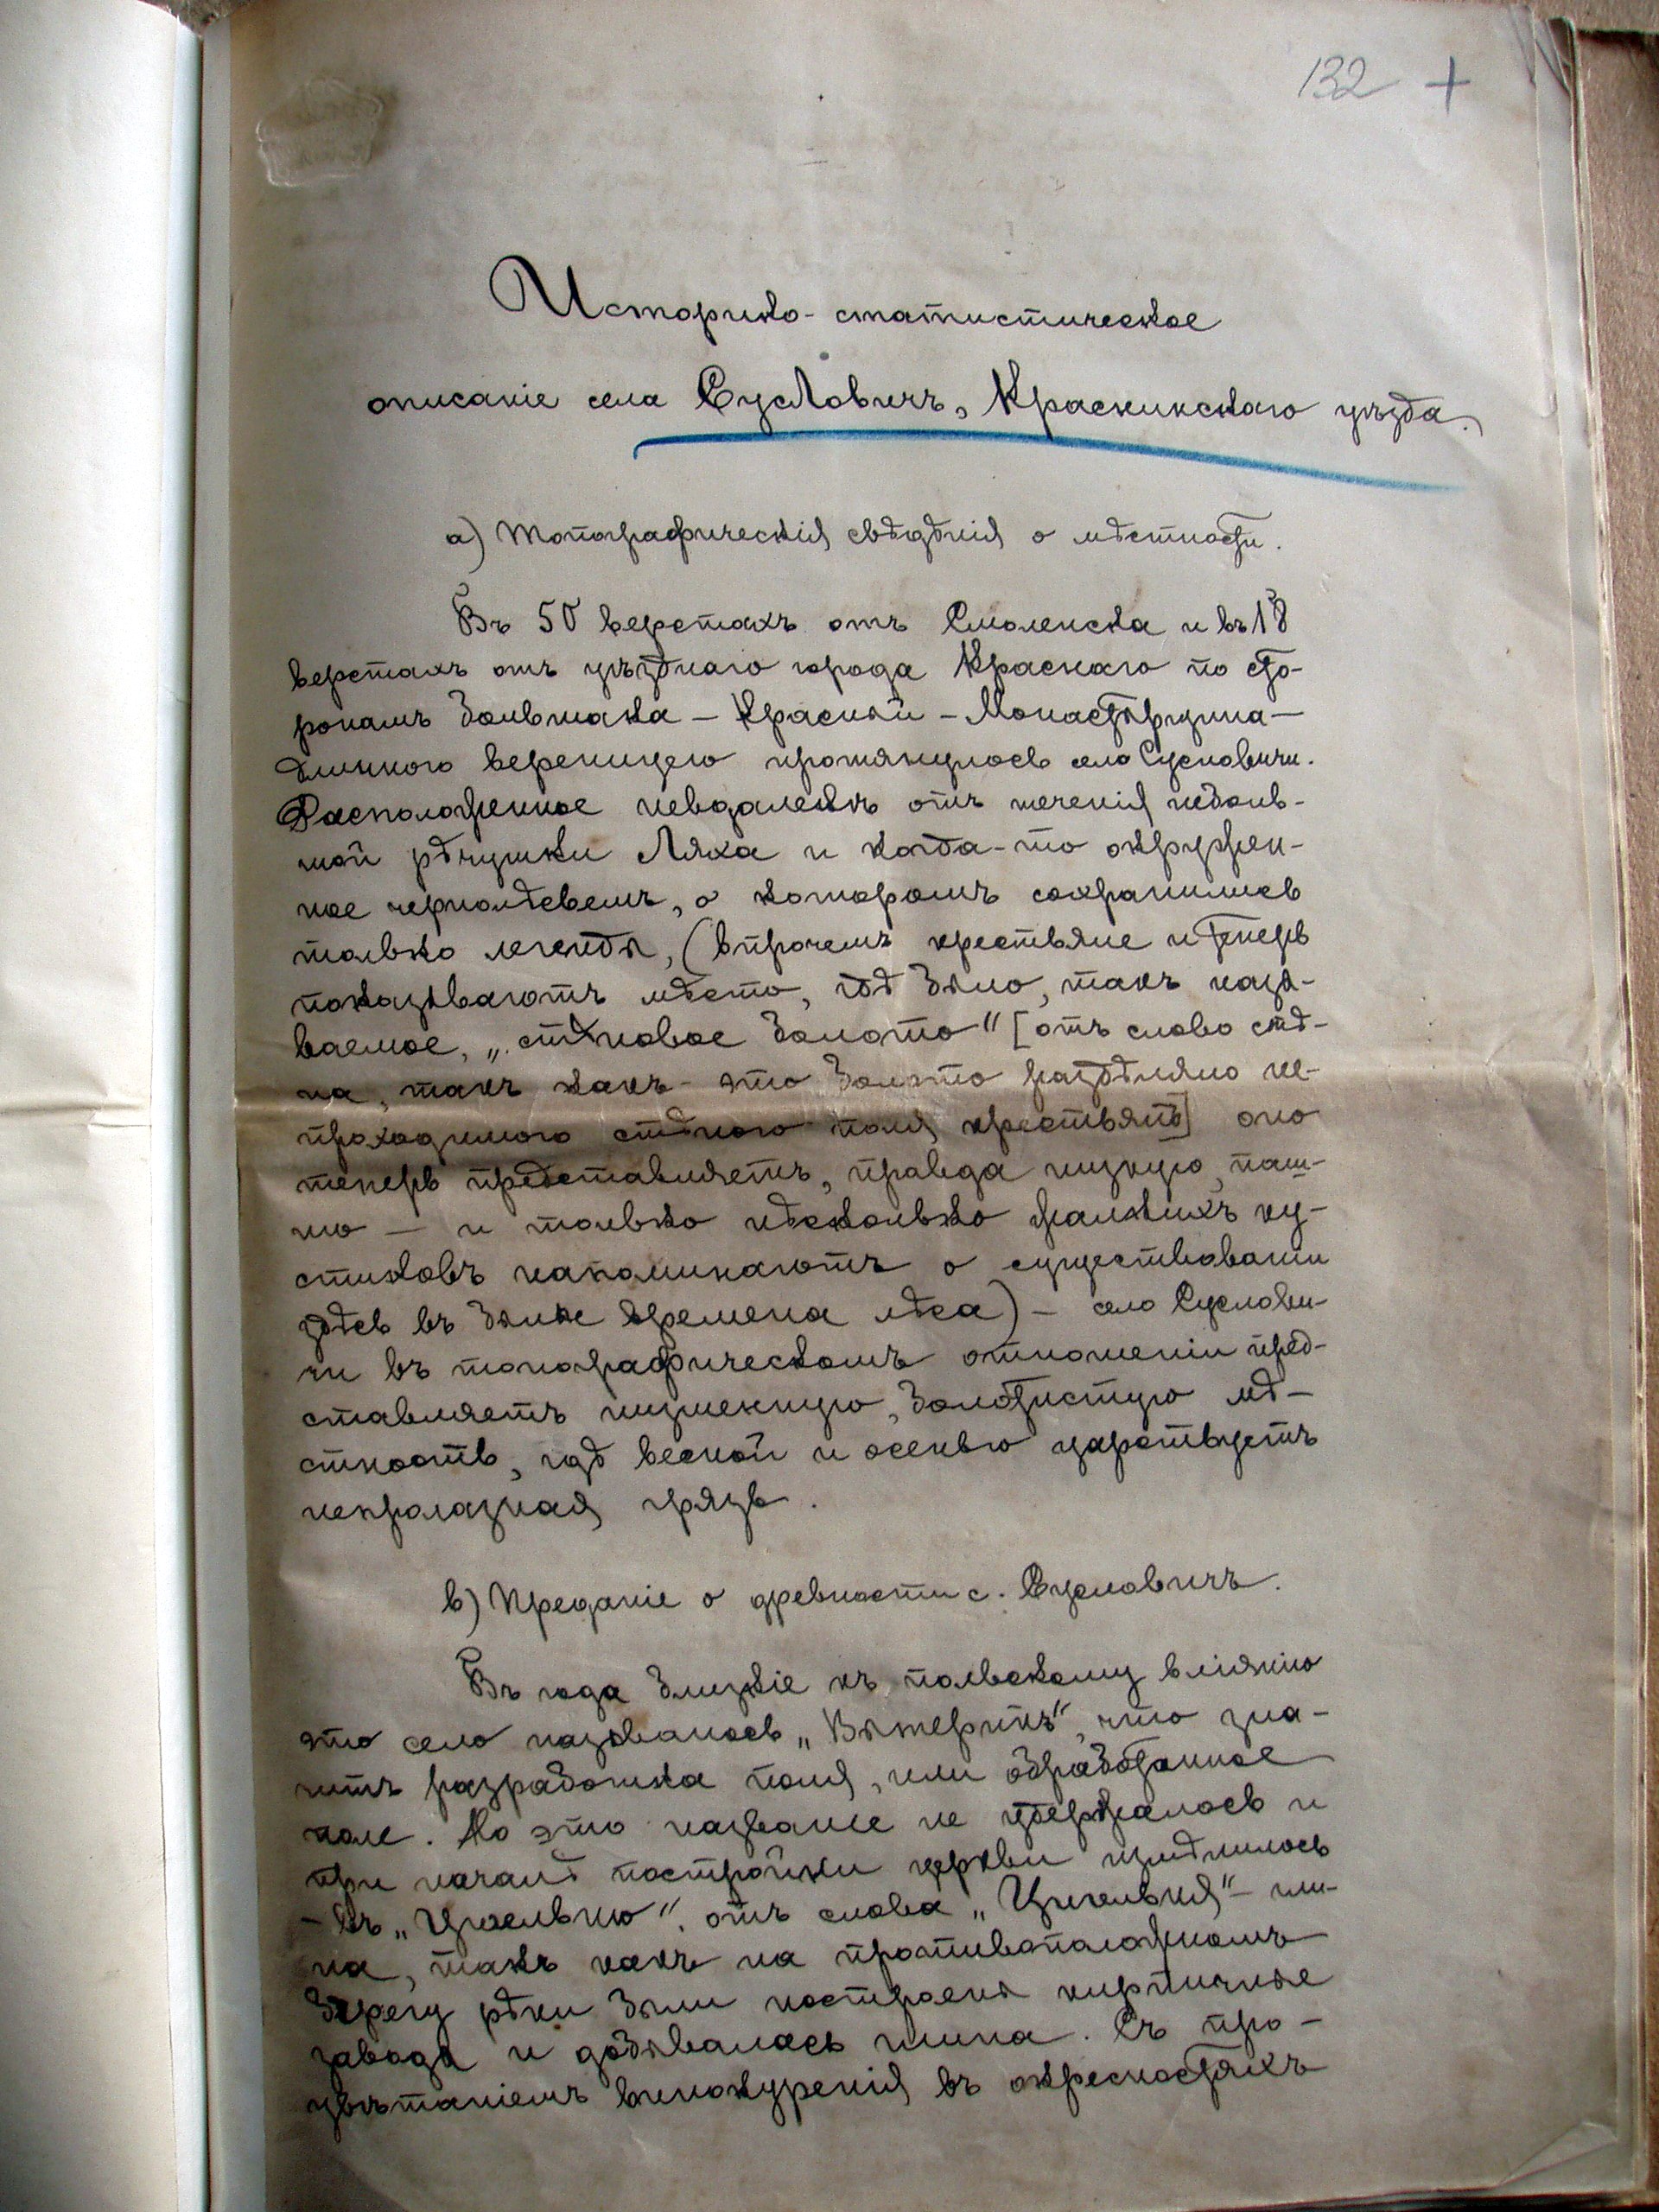 132 +
Историко-статистическое
описаніе села Сусловичъ, Краснинскаго уѣзда.
а) Топографическія свѣдѣнія о мѣстности.
Въ 50 верстахъ отъ Смоленска и въ 18
верстахъ отъ уѣзднаго города Краснаго по сто-
ронамъ большака – Красный – Монастырщина –
длинною вереницею протянулось село Сусловичи.
Расположенное невдалекѣ отъ теченія неболь-
шой рѣчушки Ляха и когда-то окружен-
ное чернолѣсьемъ, о которомъ сохранились
только легенды, (впрочемъ крестьяне и теперь
показываютъ мѣсто, гдѣ было, такъ назы-
ваемое, „стѣновое болото" [отъ слово стѣ-
на, такъ какъ это болото раздѣляло не-
проходимою стѣною поля крестьянъ] оно
теперь представляетъ, правда низкую, паш-
ню – и только нѣсколько жалкихъ ку-
стиковъ напоминаютъ о существовании
здѣсь въ былые времена лѣса) – село Суслови-
чи въ топографическомъ отношеніи пред-
ставляетъ низменную, болотистую мѣ-
стность, гдѣ весной и осенью царствуетъ
непролазная грязь.
в) Преданіе о древности с. Сусловичъ.
Въ года близкіе къ польскому вліянію
это село называлось „Вытерипъ", что зна-
читъ разработка поля, или обработанное
поле. Но это название не удержалось и
при началѣ постройки церкви измѣнилось
– въ „Цыгельню", отъ слова „Цигельня" – гли-
на, такъ какъ на противоположномъ
берегу рѣки были построены кирпичные
завода и добывалась глина. Съ про-
цвѣтаніемъ винокуренія въ окрестностяхъ